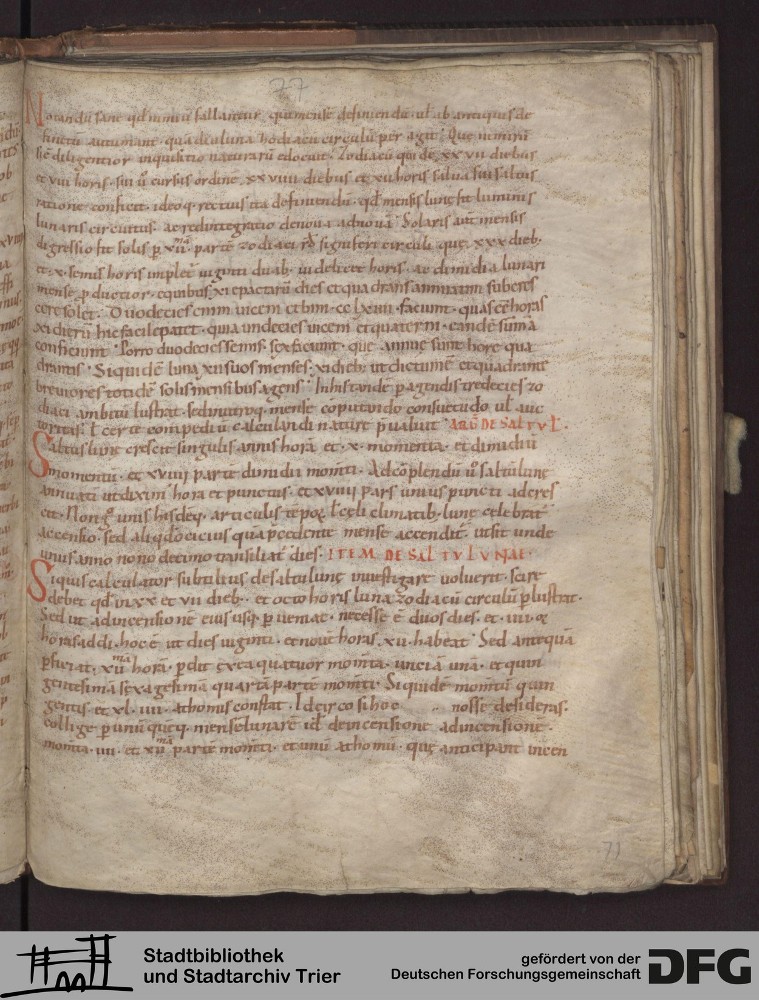 77
Notandū sane qđ nimiū fallantur qui mensē definiendū uł ab antiquis de
finitū autumant quādiu luna zodiacū circulū peragit Quę nimirū
sic diligentior inquisitio naturarū edocuit Zodiacū quidē xxvii diebus
et viii horis sui ū cursus ordinē xxviiii diebus et xii horis salua sui saltus
ratione conficit ideoq; rectius ita definiendū qđ mensis lunę sit luminis
lunaris circuitus ac redintegratio de noua ad nouā Solaris aūt mensis
digressio sit solis p xiiā partē zodiaci signiferi circuli quę xxx dieb;
et x semis horis implet uiginti duab; uidelicet horis ac dimidia lunari
mense pductior equibus xi epactarū dies et quadrans annuatim
cere solet Duodecies enim uiceni et bini cclxiiii faciunt quas ēē horas
xi dierū hic facile patet quia undecies uiceni et quaterni eandē sūmā
conficiunt Porro duodecies semis sex faciunt quę annuę sunt horę qua
drantis Siquidē luna xii suos menses xi dieb; ut dictum ē et quadrante
breuiores totidē solis mensibus agens
diaci ambitū lustrat sed utrūq; mensē cōputandi consuetudo uł auc
toritas ł certe compediū calculandi naturę pualuit ARG DE SALTU Ł
Saltus lunę crescit singulis annis horā et x momenta et dimidiū
momentū et xviiii partē dimidii momti Ad cōplendū ū saltū lunę
annuati ut diximˀ hora et punctus et xviiii pars unius puncti adcres
cit Non ḡ unis hisdēq; articulis tēpoȝ ł cęli climatib; lunę celebrat
accensio sed aliqđo citius quā pcedente mense accendit ut sit unde
unus anno nono decimo transiliat dies ITEM DE SALTU LUNAE
Siquis calculator subtilius de saltu lunę inuestigare uoluerit scire
debet qđ in xx et vii dieb; et octo horis luna zodiacū circulū plustrat
Sed ut ad incensionē eius usq; pueniat necesse ē duos dies et iiii
horas addi hoc ē ut dies uiginti et nouē horas xii habeat Sed antequā
pficiat xiimā horā pdit ex ea quatuor momta unciā unā et quin
gentesimā sexagesimā quartā partē momti Siquidē momtū quin
gentis et xl iiii athomis constat Idcirco si hoc nosse desideras
collige p unū quēq; mensē lunarē id ē de incensione ad incensionē
momta iiii et xiimā partē momti et unū athomū quę anticipant incen
71
Stadtbibliothek
und Stadtarchiv Trier
gefördert von der
Deutschen Forschungsgemeinschaft
DFG